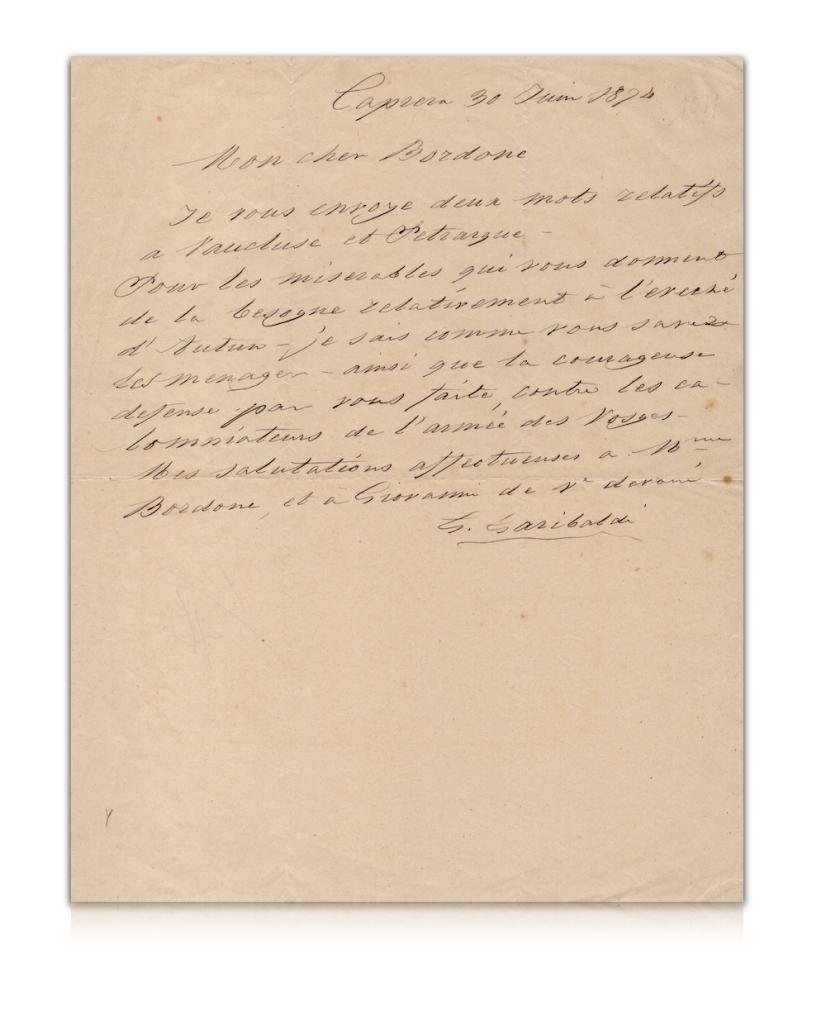 Caprera 30 Juin 1874
Mon cher Bordone
Je vous envoye deux mots relatifs
a Vaucluse et Petrarque -
Pour les miserables qui vous donnent
de la besogne relativement à l'eveché
d'Autun - je sais comme vous savez
les menager - ainsi que la courageuse
defense par vous faite, contre les ca-
lomniateurs de l'armée des Vosges -
Mes salutations affectueuses a Mme
Bordone, et à Giovanni de Ve devoué
G. Garibaldi